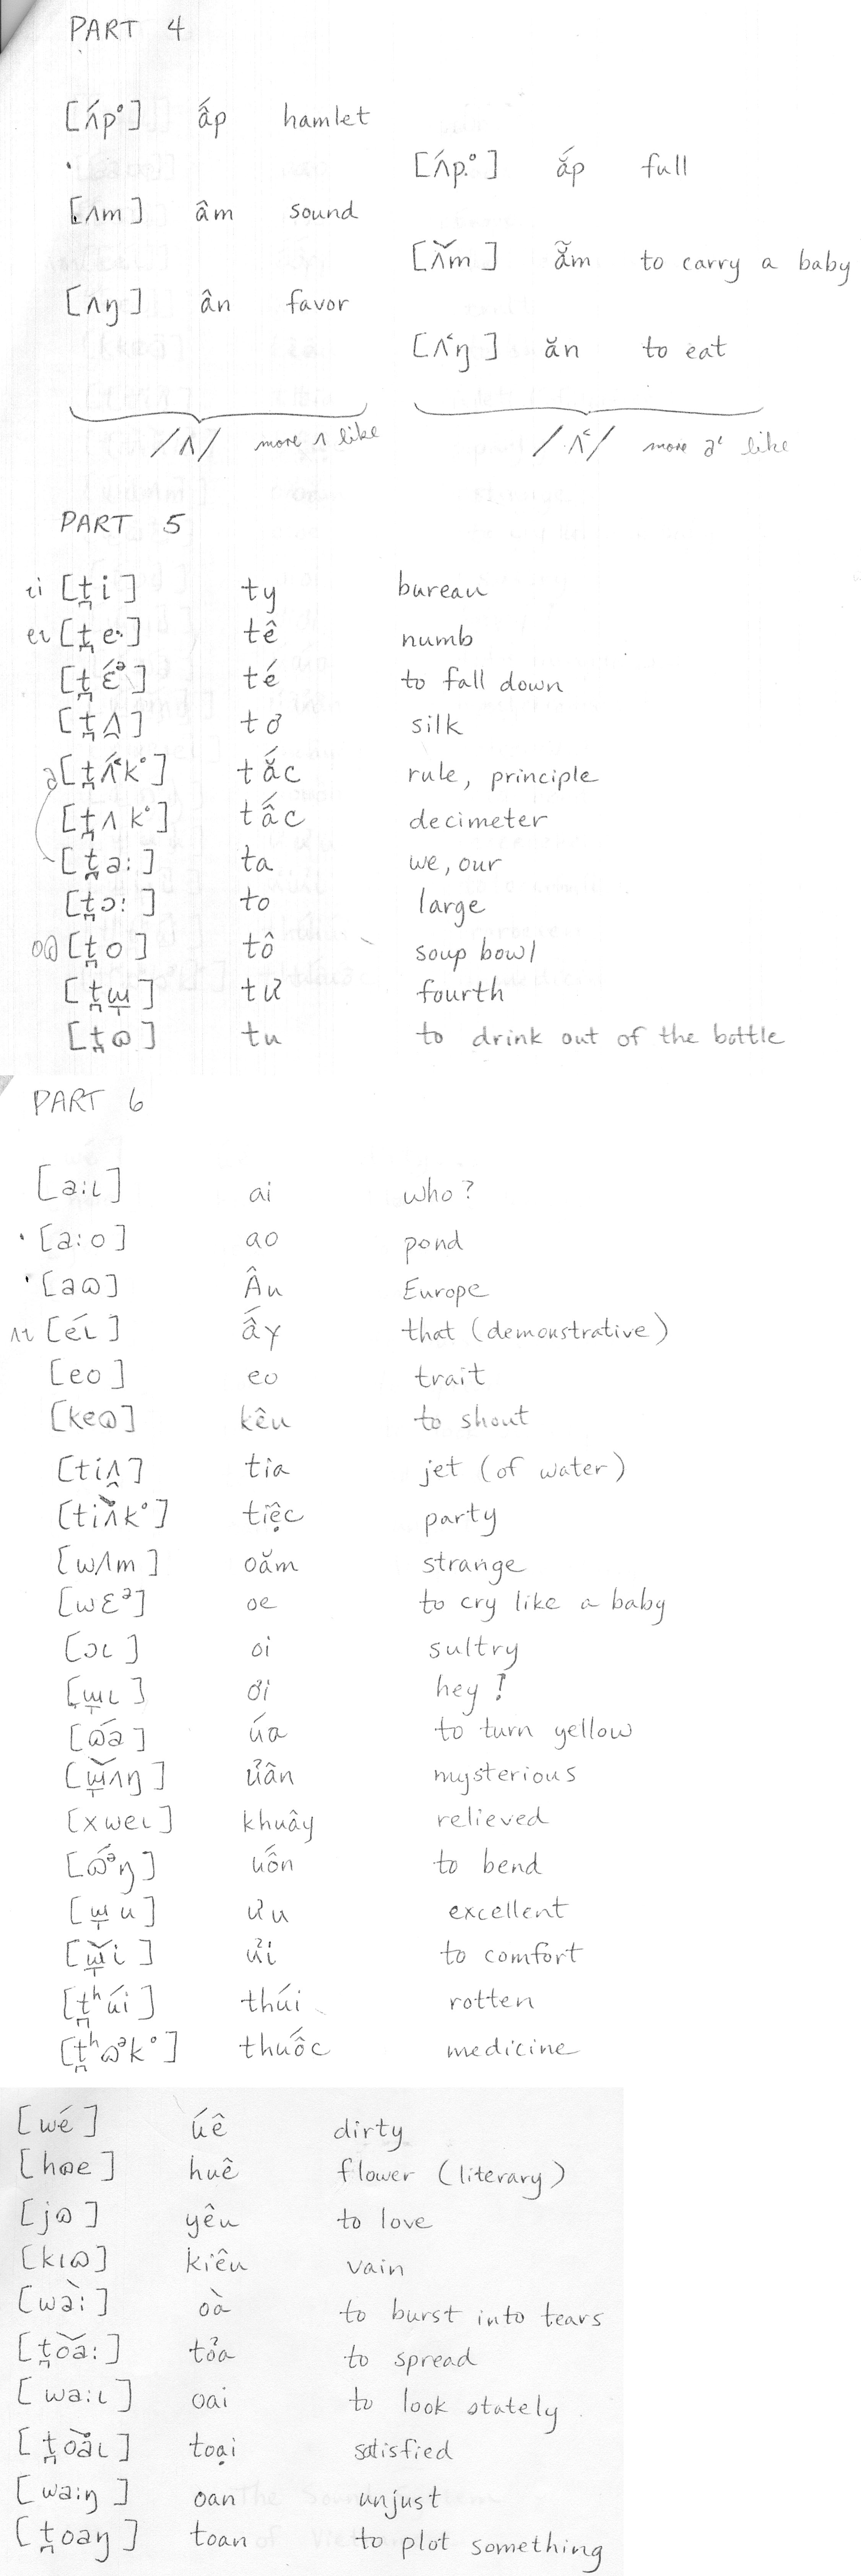 PART 4
[ʌ́p°] ấp hamlet
[ʌ́p.°] ắp full
[ʌm] âm sound
[ʌ̌m] ẵm to carry a baby
[ʌŋ] ân favor
[ʌ˂ŋ] ăn to eat
/ʌ/ more ʌ like /ʌ˂/ more ə˂ like
PART 5
ɩi [t̪i] ty bureau
eɩ [t̪e·] tê numb
[t̪ɛ́ᵊ] té to fall down
[t̪ʌ̯] tơ silk
ə [t̪ʌ́˂k°] tắc rule, principle
[t̪ʌk°] tấc decimeter
[t̪a:] ta we, our
[t̪ɔ:] to large
oɷ [t̪o] tô soup bowl
[t̪ɯ] tư fourth
[t̪ɷ] tu to drink out of the bottle
PART 6
[a:ɩ] ai who?
[a:o] ao pond
[aɷ] Âu Europe
ʌɩ [éɩ] ấy that (demonstrative)
[eo] eo trait
[keɷ] kêu to shout
[tiʌ̯] tia jet (of water)
[tiʌ̌k°] tiệc party
[wʌm] oăm strange
[wɛᵊ] oe to cry like a baby
[ɔɩ] oi sultry
[ɯɩ] ơi hey!
[ɷ́a] úa to turn yellow
[ɯ̌ʌŋ] uẩn mysterious
[xweɩ] khuây relieved
[ɷ́ᵊŋ] uốn to bend
[ɯu] ưu excellent
[ɯ̌i] ủi to comfort
[t̪ʰúi] thúi rotten
[t̪ʰɷᵊk°] thuốc medicine
[wé] úê dirty
[hɷe] huê flower (literary)
[jɷ] yêu to love
[kɩɷ] kiêu vain
[wà:] oà to burst into tears
[t̪oǎ:] tỏa to spread
[wa:ɩ] oai to look stately
[t̪oǎɩ] toại satisfied
[wa:ŋ] oan unjust
[t̪oaŋ] toan to plot something